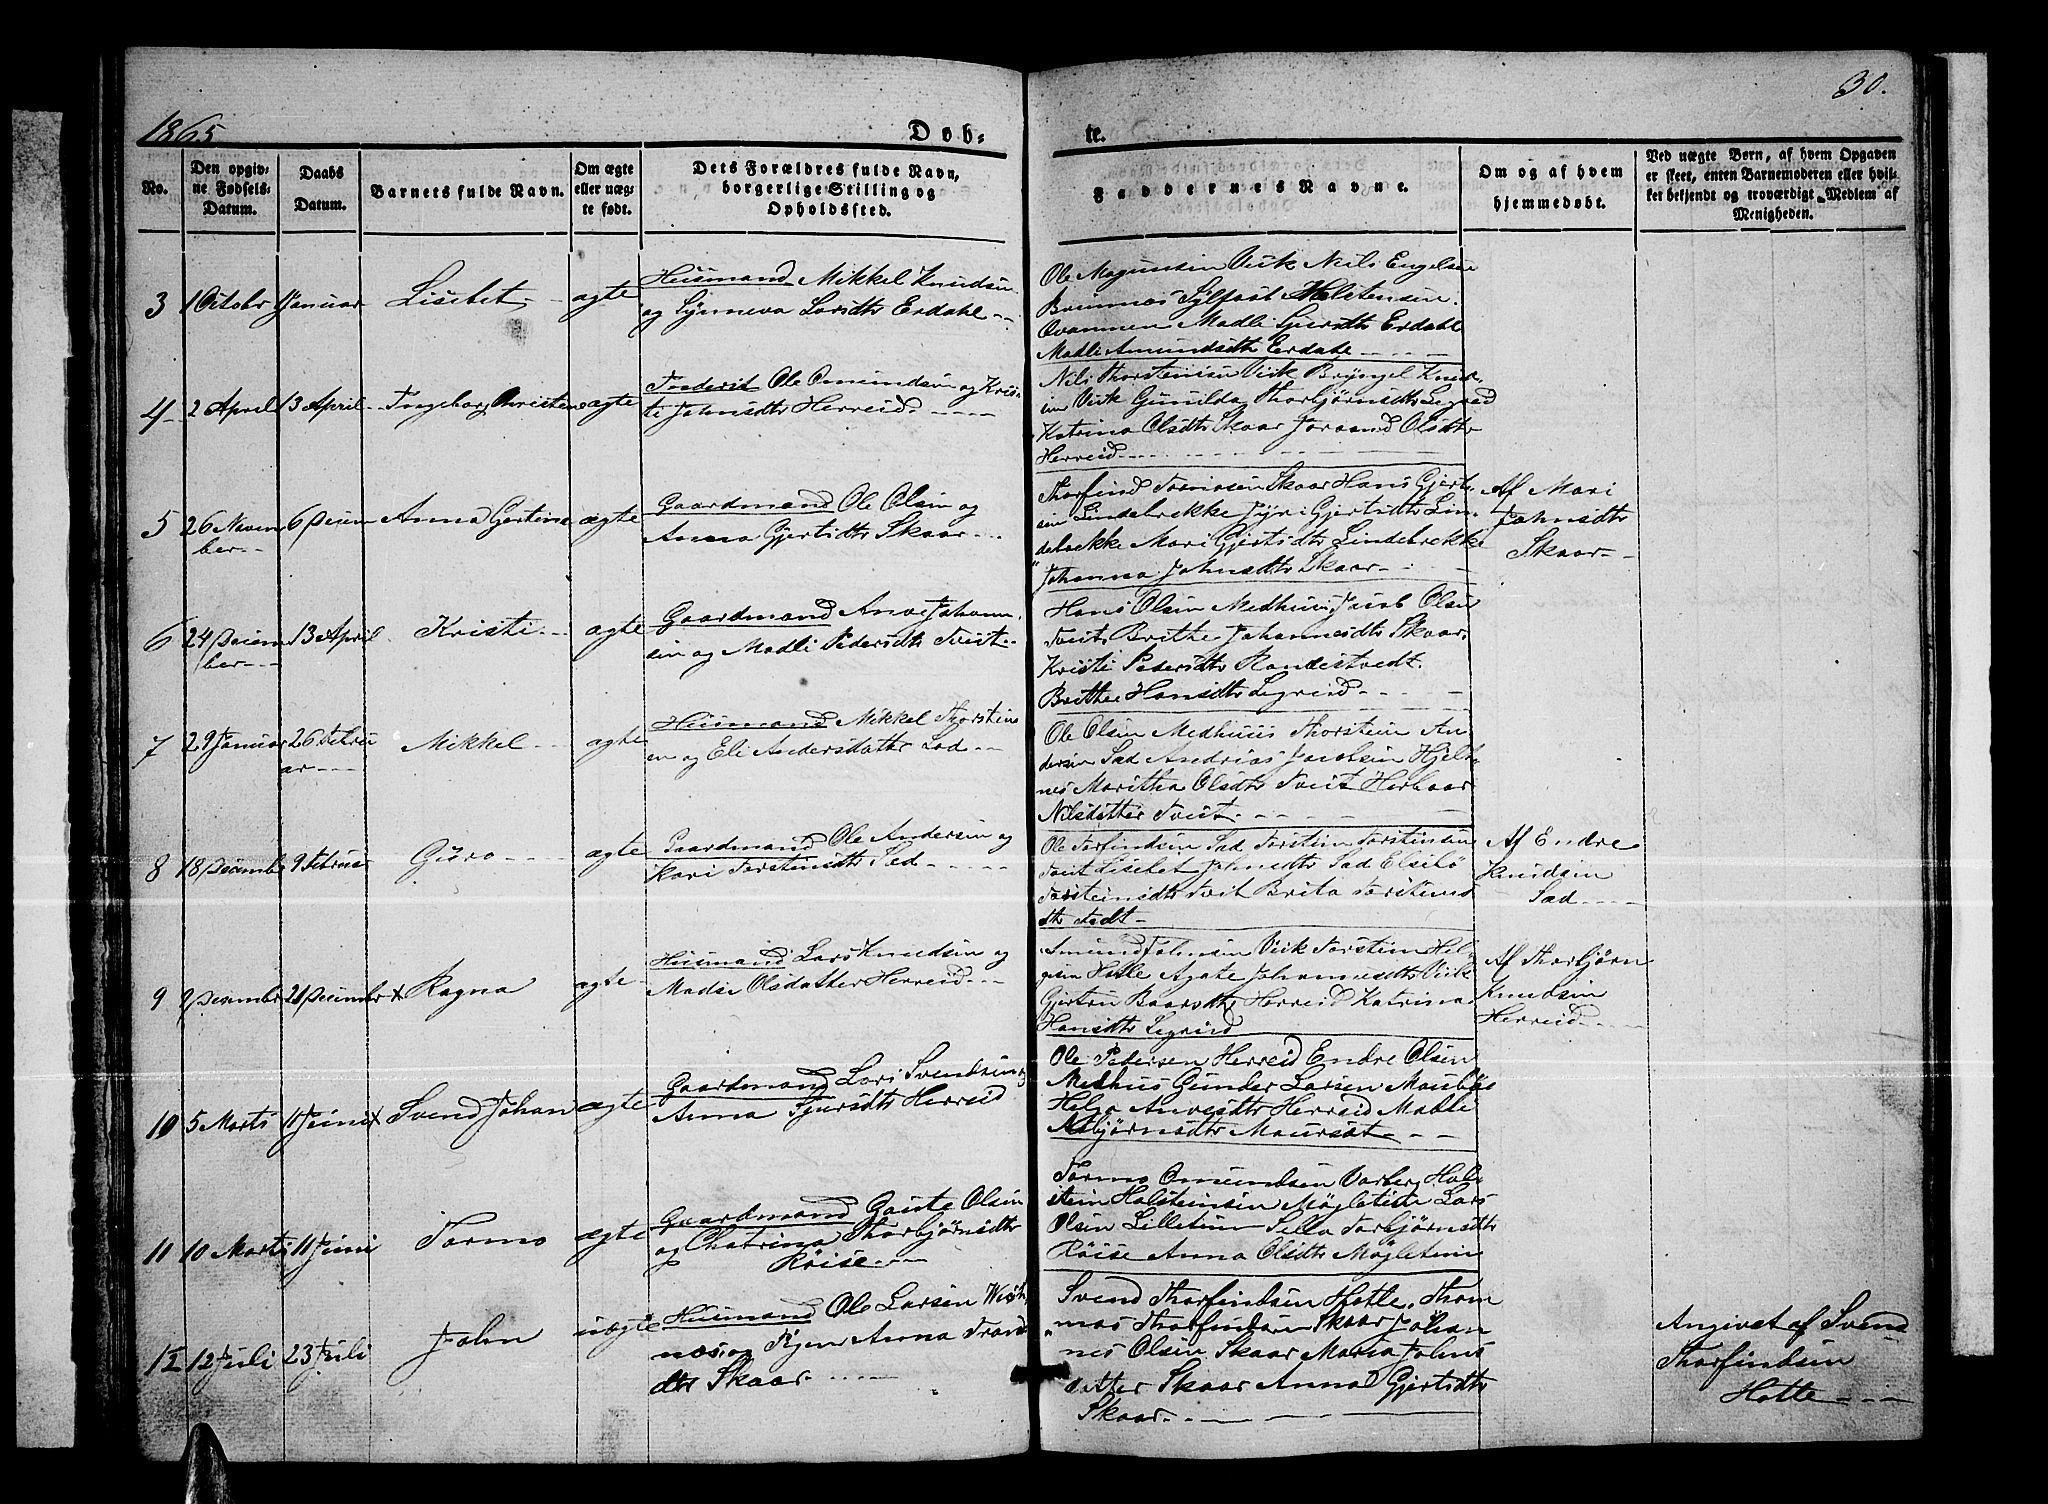 1865
Døb-
te.
30.
No.
Den opgiv-
ne Fødsels-
Datum.
Daabs
Datum.
Barnets fulde Navn.
Om ægte
eller uæg-
te født.
Dets Forældres fulde Navn,
borgerlige Stilling og
Opholdssted.
Faddernes Navne.
Om og af hvem
hjemmedøbt.
Ved uægte Børn, af hvem Opgaven
er skeet, enten Barnemoderen eller hvil-
ket bekjendt og troværdigt Medlem af
Menigheden.
3
1 Octobr
1 Januar
Lisebet
ægte
Husmand Mikkel Knudsen
og Synneva Larsdtr Erdahl
Ole Magunsin Viik Nils Engelsen
Brimnæs Sylfæst Holstensen
Qvammen Madli Sjursdtr Erdahl
Madli Amundsdtr Erdahl
4
2 April
13 April
Ingeborg Christens
ægte
Inderst Ole Omundsen og Kris-
ti Johnsdtr Herreid
Nils Thorsteinsen Viik Bryngel Knud-
sen Viik Gunilda Thorbjørnsdtr Legreid
Katrina Olsdtr Skaar Joraand Olsdtr
Herreid
5
26 Novem
ber
6 Decem
Anna Gertina
ægte
Gaardmand Ole Olsen og
Anna Gjertsdtr Skaar
Thorfind Tormosen Skaar Hans Gjert-
sen Lindebrekke Gjertsdtr Lin-
debrekke Mari Gjertsdtr Lindebrekke
Johanna Johnsdtr Skaar
Af Mari
Johnsdtr
Skaar
6
24 Decem
ber
13 April
Kristi
ægte
Gaardmand Anve Johann
sen og Madli Pedersdtr Tveit
Hans Olsen Medhuus Jacob Olsen
Tveit Brithe Johannesdtr Skaar
Kristi Pedersdtr Rondestvedt
Brithe Hansdtr Legreid
7
29 Januar
26 Febru
ar
Mikkel
ægte
Husmand Mikkel Thorstens
en og Eli Andersdatter Sæd
Ole Olsen Medhuus Thorstein An-
dersen Sæd Andrias Jacobsen Hjelt-
næs Maritha Olsdtr Tveit Herbaar
Nilsdatter Tveit
8
18 Decemb
9 Februar
Guro
ægte
Gaardmand Ole Andersen og
Kari Torstensdtr Sæd
Ole Torfindsen Sæd Torstein Torstensen
Tveit Lisebet Johnsdtr Sæd
Torsteinsdtr Tveit Brita Torstens
dtr
Af Endre
Knudsen
Sæd
9
2 Decembr
26 December
x
Ragna
ægte
Husmand Lars Knudsen og
Madse Olsdatter Herreid
Amund Johnsen Viik Torstein Hel-
gesen Hotle Agate Johannesdtr Viik
Gjertru Baarsdtr Herreid Katrina
Hansdtr Legreid
Af Thorbjørn
Knudsen
Herreid
10
5 Marts
11 Juni
x
Svend Johan
ægte
Gaardmand Lars Svendsen og
Anna Sjursdtr Herreid
Ole Pedersen Herreid Endre Olsen
Medhus Gunder Larsen Maursæt
Helga Anvesdtr Herreid Madle
Asbjørnsdtr Maursæt
11
10 Marts
11 Juni
Tormo
ægte
Gaardmand Gaute Olsen
og Chatrina Thorbjørnsdtr
Röise
Tormo Omundsen Varberg Hol-
stein Holsteinsen Mögletun Lars
Olsen Lilletun Sella Torbjørnsdtr
Röise Anna Olsdtr Mögletun
12
12 Juli
23 Juli
John
uægte
Husmand Ole Larsen
næs og Pigen Anna Trond
dtr Skaar
Svend Thorfindsen Hotle Thom
mas Thorfindsen Skaar Johan
nes Olsen Skaar Maria Johns
datter Skaar Anna Gjertsdtr
Skaar
Angivet af Svend
Thorfindsen
Hotle